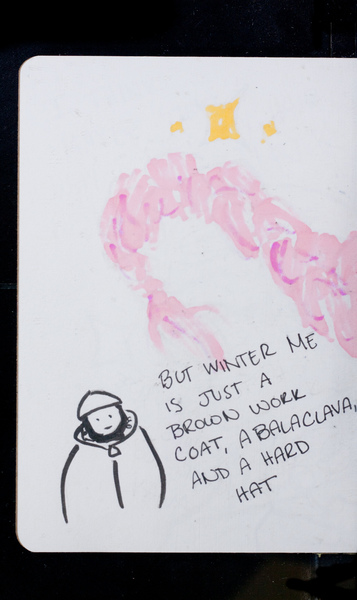 BUT WINTER ME
IS JUST A
BROWN WORK
COAT, A BALACLAVA,
AND A HARD
HAT